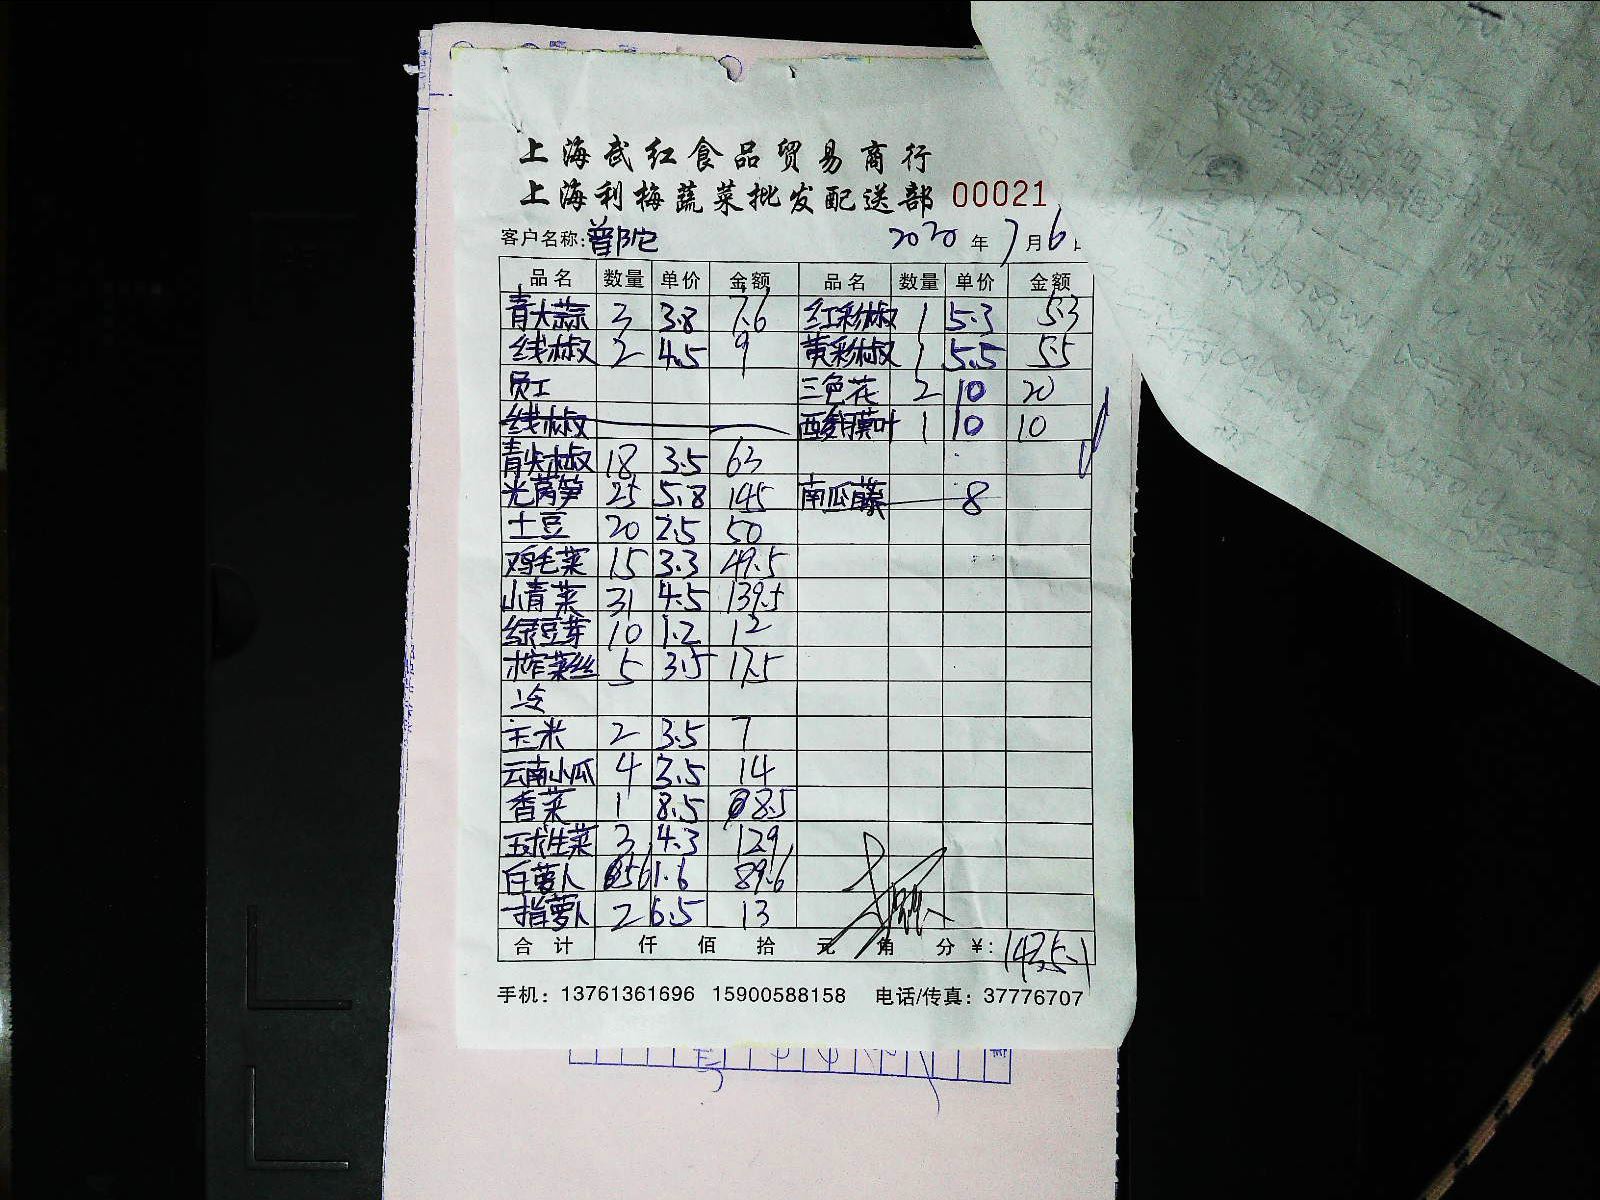 上海武红食品贸易商行
上海利梅蔬菜批发配送部 00021
客户名称: 普陀 2020 年 7 月 6
品名 数量 单价 金额 品名 数量 单价 金额
青大蒜 2 3.8 7.6 红彩椒 1 5.3 5.3
线椒 2 4.5 9 黄彩椒 1 5.5 5.5
员工 三色花 2 10 20
线椒 酸模叶 1 10 10
青尖椒 18 3.5 63
光莴笋 25 5.8 145 南瓜藤 8
土豆 20 2.5 50
鸡毛菜 15 3.3 49.5
小青菜 31 4.5 139.5
绿豆芽 10 1.2 12
榨菜丝 5 3.5 17.5
冷
玉米 2 3.5 7
云南小瓜 4 3.5 14
香菜 1 8.5 8.5
玉球生菜 3 4.3 12.9
白萝卜 56 1.6 89.6
指萝卜 2 6.5 13
合计 仟 佰 拾 元 角 分 ¥:
手机：13761361696 15900588158 电话/传真：37776707